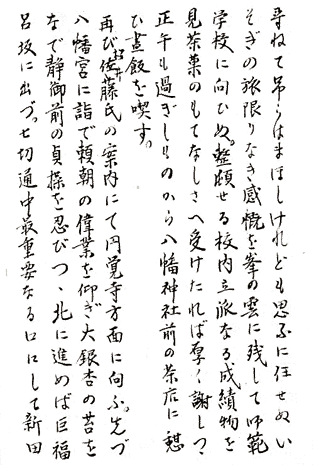 尋ねて弔らはまほしけれども思ふに任せぬい
そぎの旅限りなき感慨を峯の雲に残して師範
学校に向ひぬ。整頓せる校内立派なる成績物を
見茶菓のもてなしさへ受けたれば厚く謝しつゝ
正午も過ぎしものから八幡神社前の茶店に憩
ひ昼飯を喫す。
再び佐藤氏の案内にて円覚寺方面に向ふ。先づ
八幡宮に詣で頼朝の偉業を仰ぎ大銀杏の苔を
なで静御前の貞操を忍びつゝ北に進めば巨福
呂坂に出づ。七切通中最重要なる口にして新田